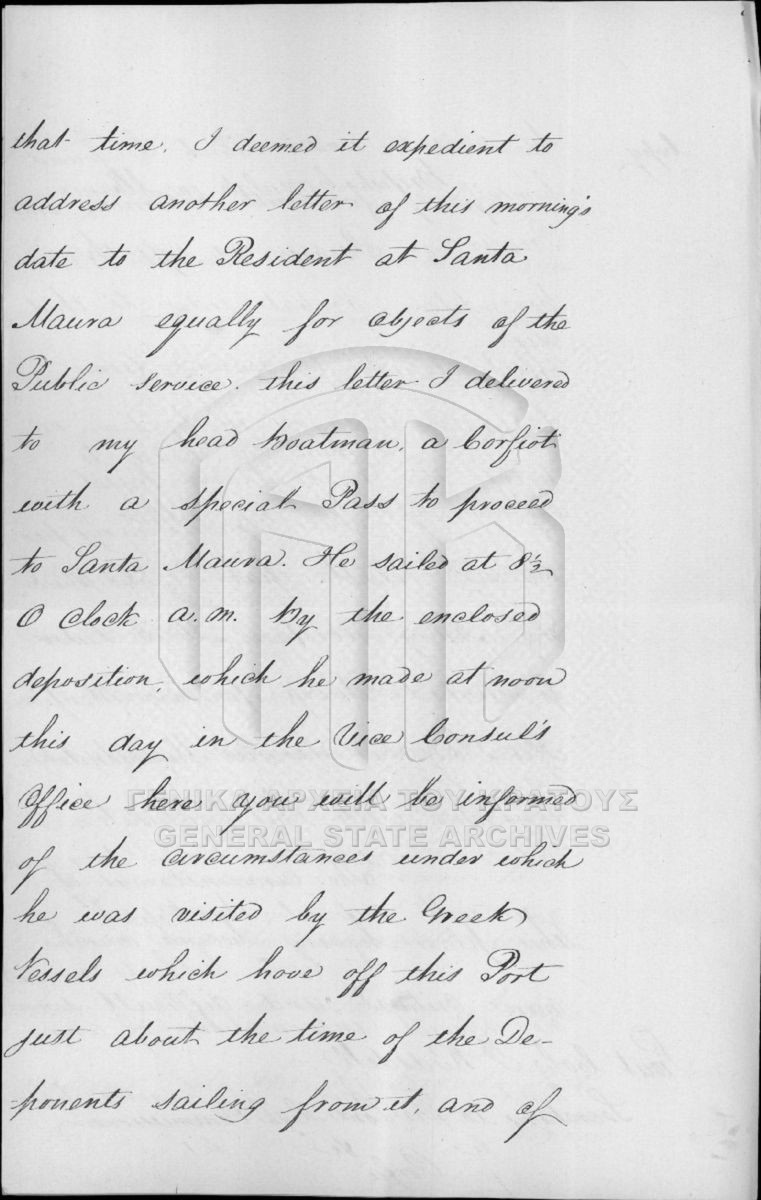 that time. I deemed it expedient to
address another letter of this morning's
date to the Resident at Santa
Maura equally for objects of the
Public service. this letter I delivered
to my head boatman, a Corfiot
with a special Pass to proceed
to Santa Maura. He sailed at 8½
O Clock a.m. by the enclosed
deposition, which he made at noon
this day in the Vice Consul's
Office here you will be informed
ΓΕΝΙΚΑ ΑΡΧΕΙΑ ΤΟΥ ΚΡΑΤΟΥΣ
GENERAL STATE ARCHIVES
of the circumstances under which
he was visited by the Greek
Vessels which hove off this Port
just about the time of the De-
-ponents sailing from it, and of